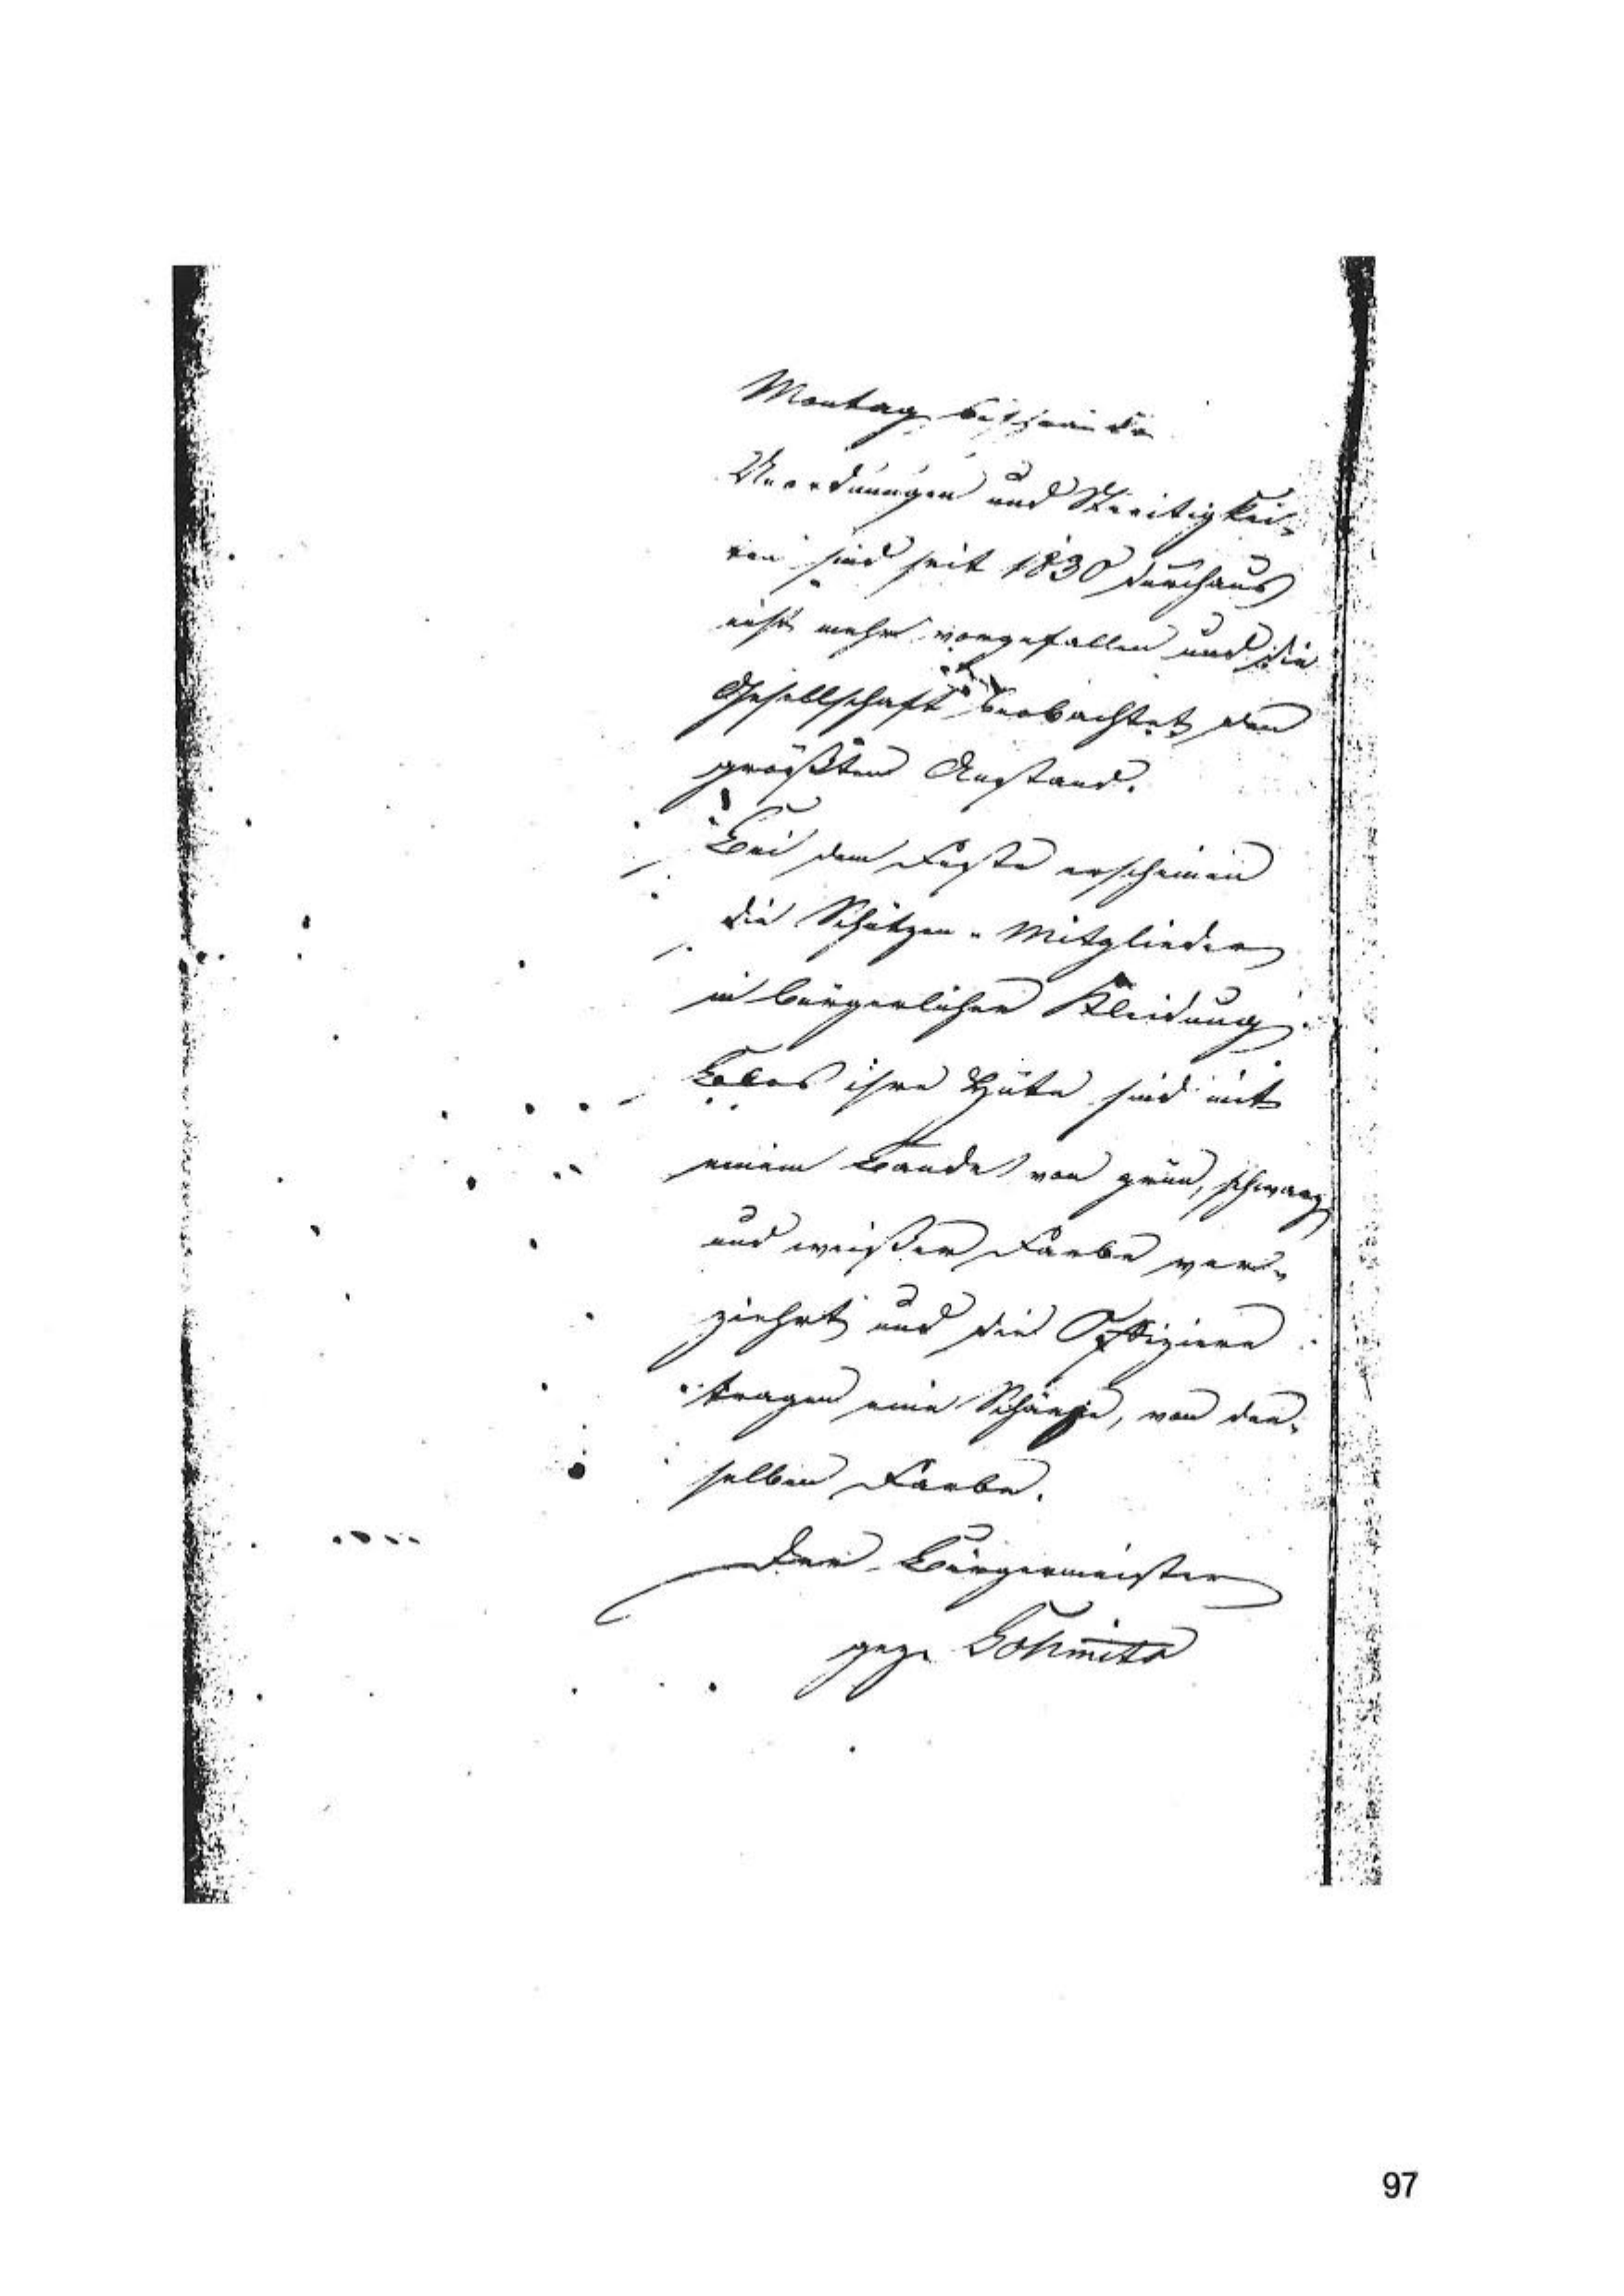 Montag
Unordnungen und Streitigkei-
ten sind seit 1830 durchaus
nicht mehr vorgefallen und die
Gesellschaft beobachtet den
größten Anstand.
Bei dem Feste erscheinen
die Schützen-Mitglieder
in bürgerlicher Kleidung
ihre Hüte sind mit
einem Bande von grün, schwarz
und weißer Farbe ver-
ziehrt und die Offiziere
tragen eine Schärpe, von der-
selben Farbe.
Der Bürgermeister
gez. Schmitz
97